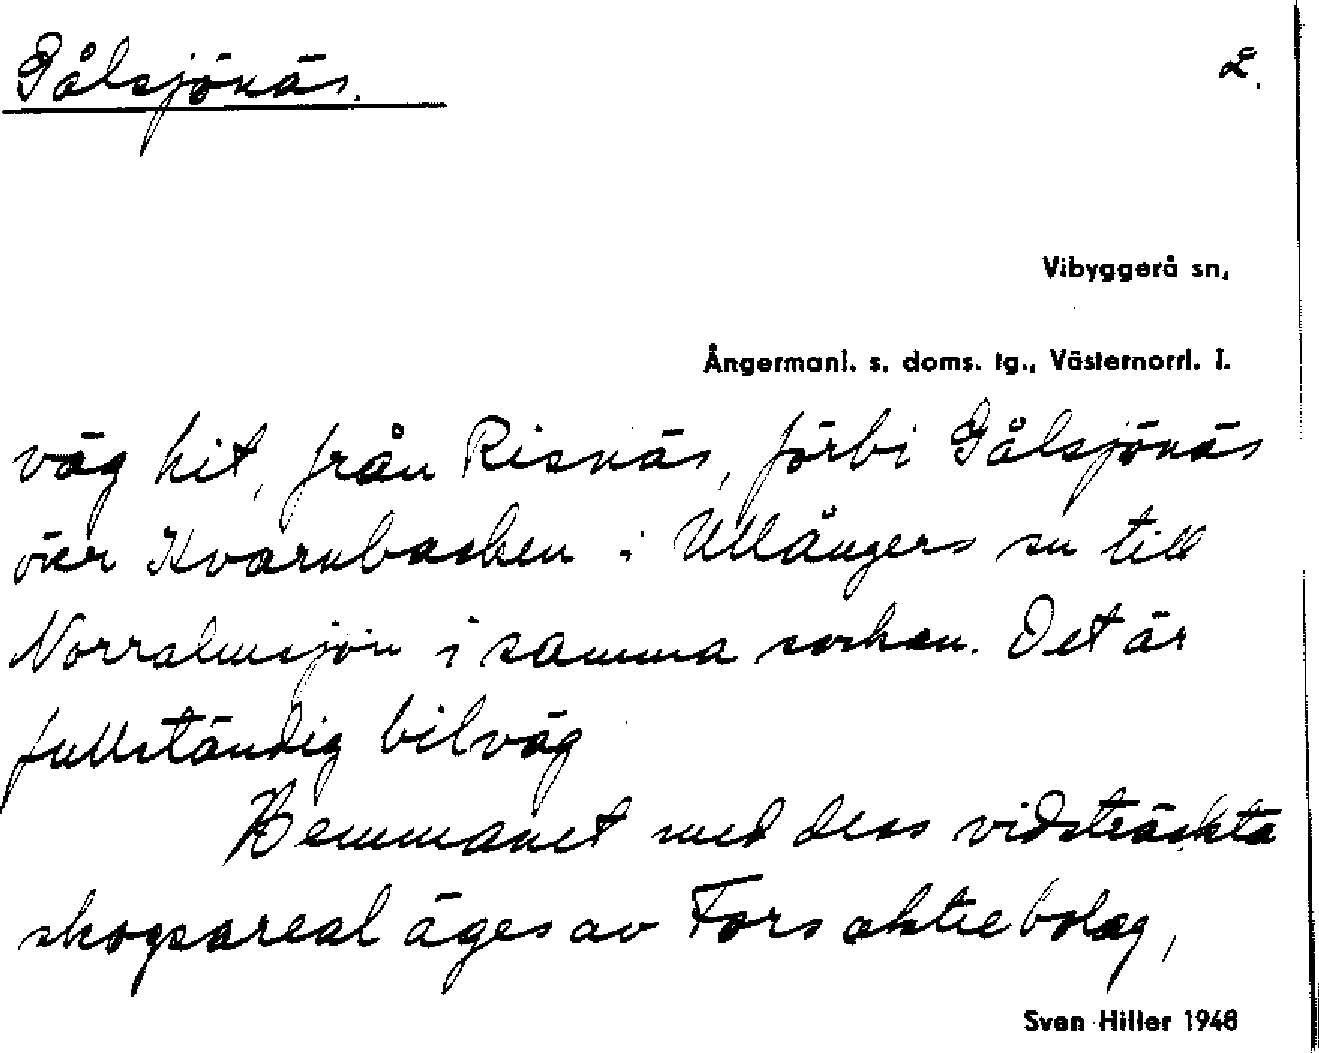 Gålsjönäs. 2.
Vibyggerå sn,
Ångermanl. s. doms. tg., Västernorrl. l.
väg hit, från Risnäs, förbi Gålsjönäs
över Kvarnbacken i Ullångers sn till
Norralmsjön i samma socken. Det är
fullständig bilväg
Hemmanet med dess vidsträckta
skogsareal äges av Fors aktiebolag,
Sven Hiller 1948